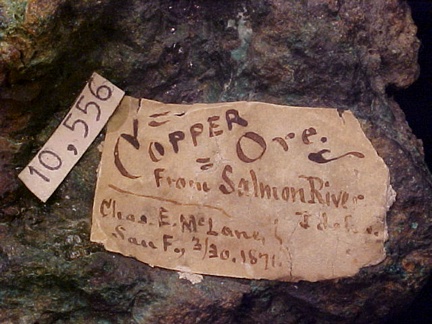 10,556
Copper Ore.
From Salmon River
Chas. E. McLane, Idaho.
San F., 3/30, 1871.